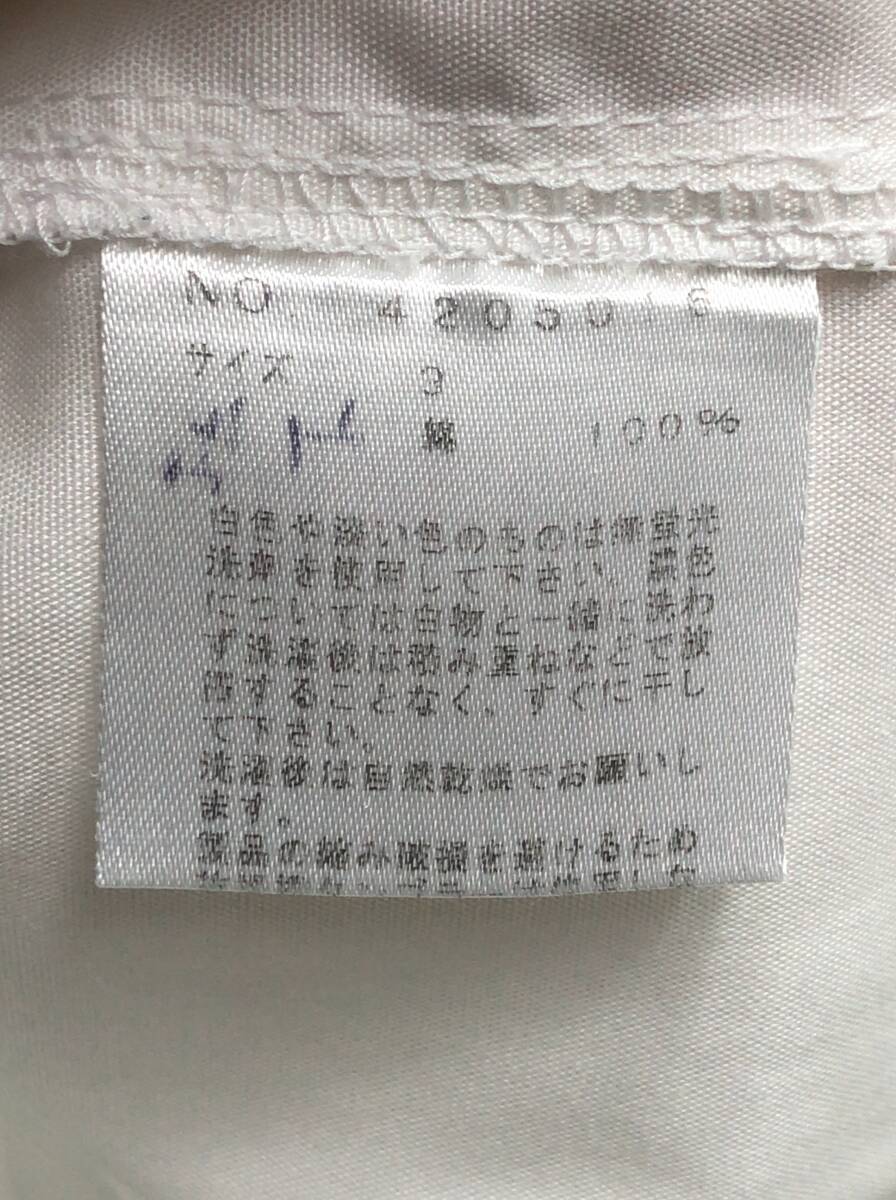 NO. 4205016
サイズ 3
綿 100%
白色や淡い色のものは無蛍光
洗剤を使用して下さい。濃色
については白物と一緒に洗わ
ず洗濯後は積み重ねなどで放
置することなく、すぐに干し
て下さい。
洗濯後は自然乾燥でお願いし
ます。
製品の縮み破損を避けるため